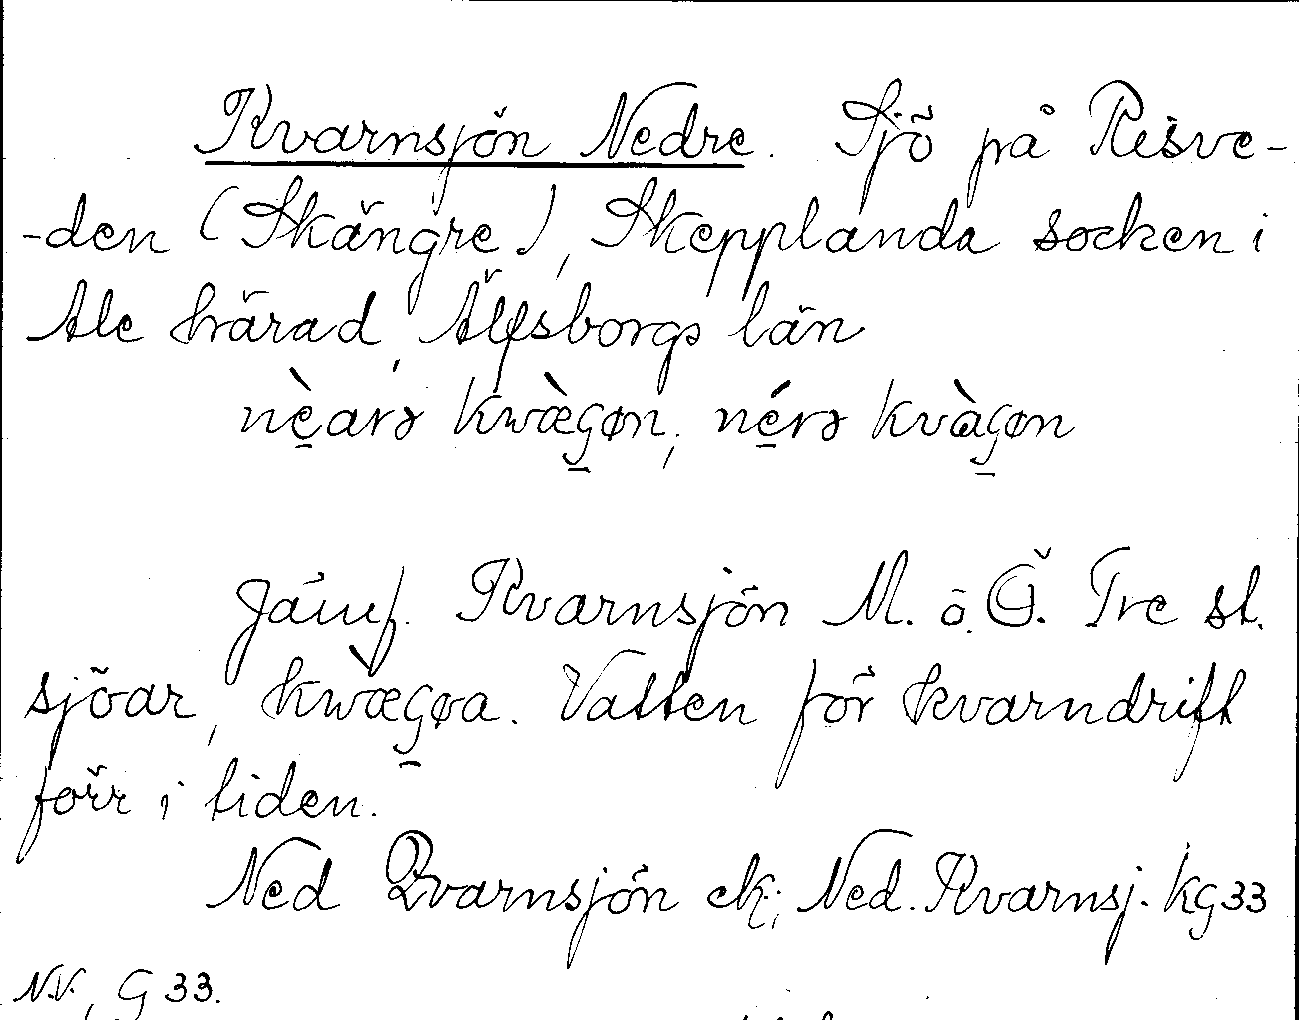 Kvarnsjön Nedre. Sjö på Risve-
-den (Skängre), Skepplanda socken i
Ale härad, Älfsborgs län
nèarə kwæ̀gøn, nérə kvàgøn
Jämf. Kvarnsjön M. o. Ö. Tre st.
sjöar, kwæ̀gøa. Vatten för kvarndrift
förr i tiden.
Ned Qvarnsjön ek; Ned. Kvarnsj. KG33
N.V., G 33.